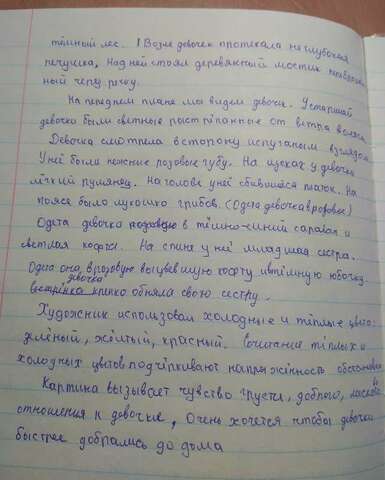 тёмный лес. Возле девочек протекала неглубокая
речушка, Над ней стоял деревянский мостик
ный через речку.
На переднем плане мы видем девочек. У старшей
девочки были светлые растрёпанные от ветра волосы.
Девочка смотрела в сторону испуганым взглядом.
У неё были нежные розовые губу. На щеках у девочки
лёгкий румянец. На голове у неё сбившийся платок. На
поясе было лукошко грибов. (Одета девочка в розовые)
Одета девочка в тёмно-синий сарафан и
светлая кофта. На спине у неё младшая сестра.
Одета она в розовую выцвевшую кофту и тёмную юбочку.
девочка
сестрёнка крепко обняла свою сестру.
Художник использовал холодные и тёплые цвета:
зелёный, жёлтый, красный. Сочетание тёплых и
холодных цветов подчёркивают напряжённость обстановки
Картина вызывает чувство грусти, доброго,
отношения к девочке, Очень хочется чтобы девочки
быстрее добрались до дома